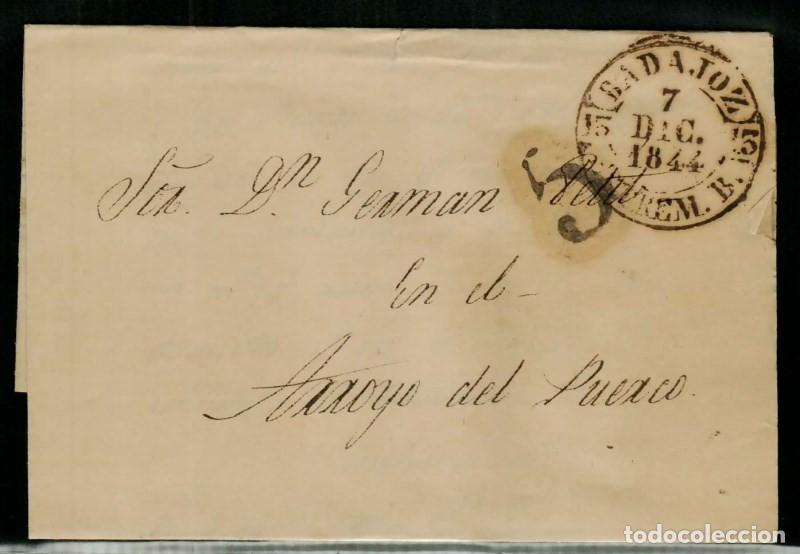 BADAJOZ
7
DIC.
1844
5 5
EXTREM. B.
5
Sör. Dn German Petit
En el
Arroyo del Puerco.
todocoleccion